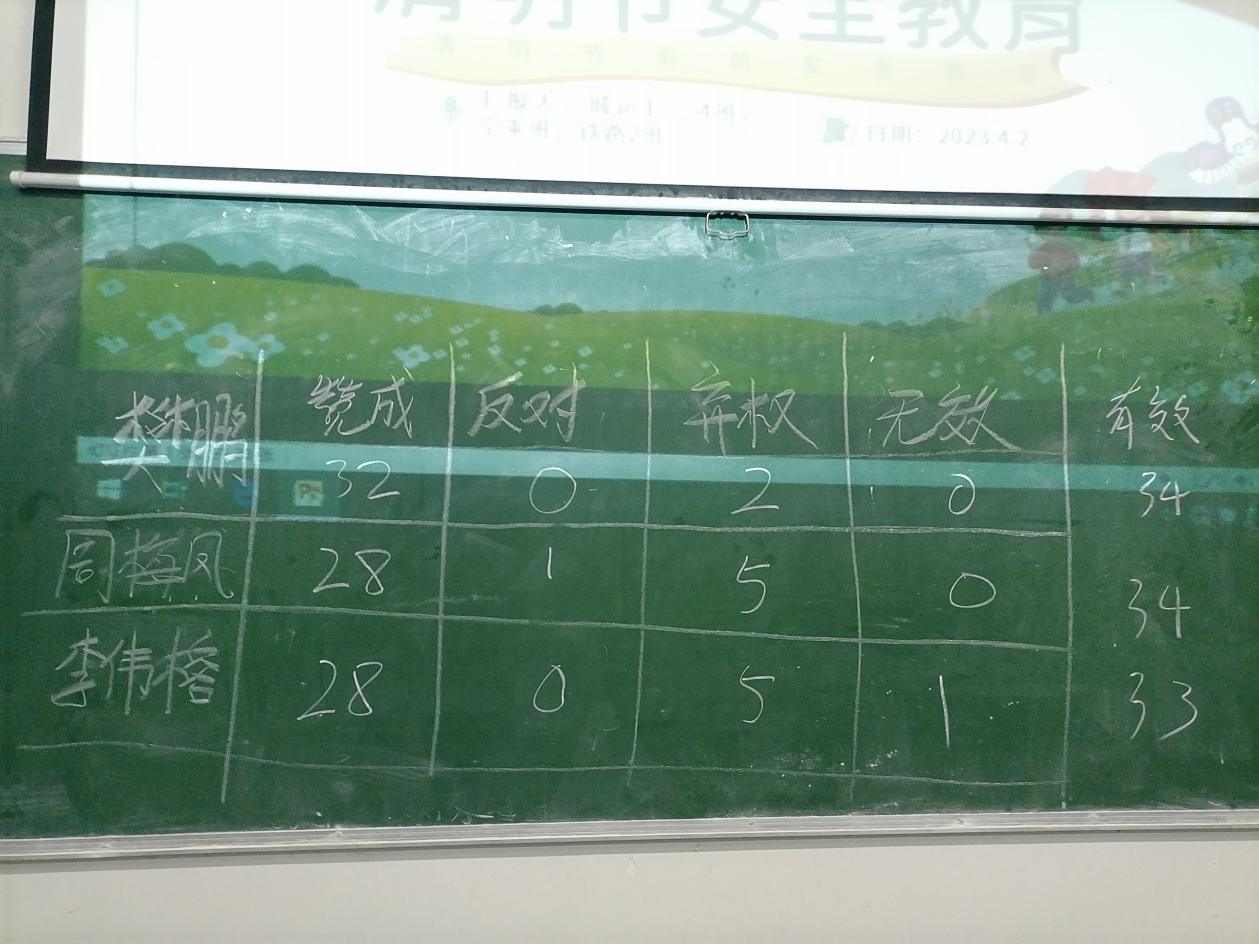 清明节安全教育
清 明 节 假 期 安 全 教 育
日期：2023.4.2
樊鹏 赞成 反对 弃权 无效 有效
32 0 2 0 34
周梅凤 28 1 5 0 34
李伟榕 28 0 5 1 33